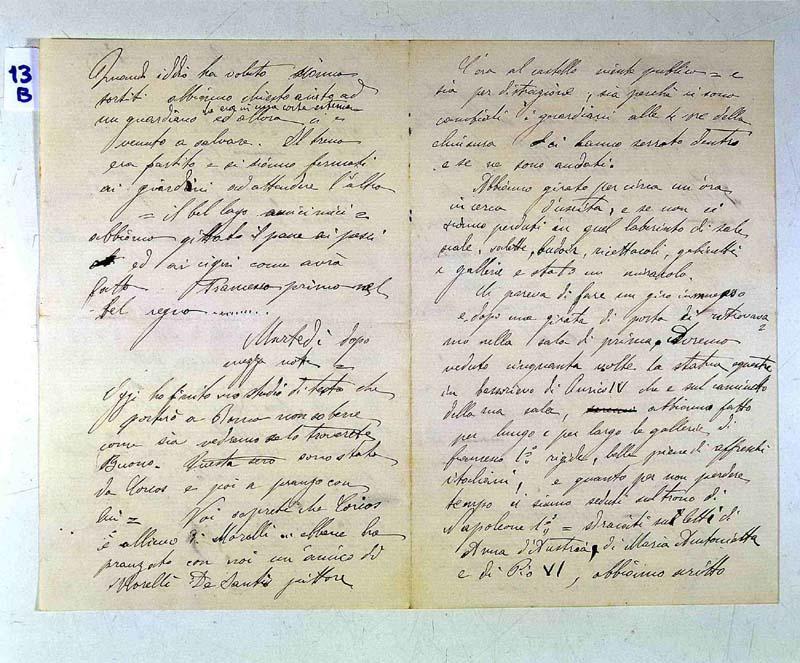 13
B
Quando iddio ha voluto siamo
sortiti abbiamo chiesto aiuto ad
un guardiano ed allora ci è
da una corte esterna
venuto a salvare. Il treno
era partito e si siamo fermati
ai giardini ad attendere l'altro
= il bel lago
abbiamo gittato il pane ai pesci
ed ai cigni come avrà
fatto Francesco primo nel
bel regno ........
Martedì dopo
mezza notte =
Oggi ho finito uno studio di testa che
porterò a Roma non so bene
come sia vedremo se lo troverete
Buono. Questa sera sono stato
da Corcos e poi a pranzo con
lui = Voi saprete che Corcos
è allievo di Morelli .. ebbene ha
pranzato con noi un amico di
Morelli De Santis pittore
C'era al castello niente publico = e
sia per distrazione, sia perché si sono
cambiati i guardiani alle 4 ore della
chiusura ci hanno serrato dentro
e se ne sono andati.
Abbiamo girato per circa un'ora
in cerca d'uscita, e se non ci
siamo perduti in quel laberinto di sale
scale, salette, budoir, ricettacoli, gabinetti
e gallerie è stato un miracolo.
Mi pareva di fare un giro immenso
e dopo una girata di porta si ritrovava=
mo nella sala di prima. Avremo
veduto cinquanta volte la statua equestre
in bassorilievo di Enrico IV che è sul caminetto
della sua sala, abbiamo fatto
per lungo e per largo le gallerie di
Francesco 1º rigide, belle piene di affreschi
italiani, e quanto per non perdere
tempo ci siamo seduti sul trono di
Napoleone 1º, = sdraiati sui letti di
Anna d'Austria, di Maria Antonietta
e di Pio VI, abbiamo scritto